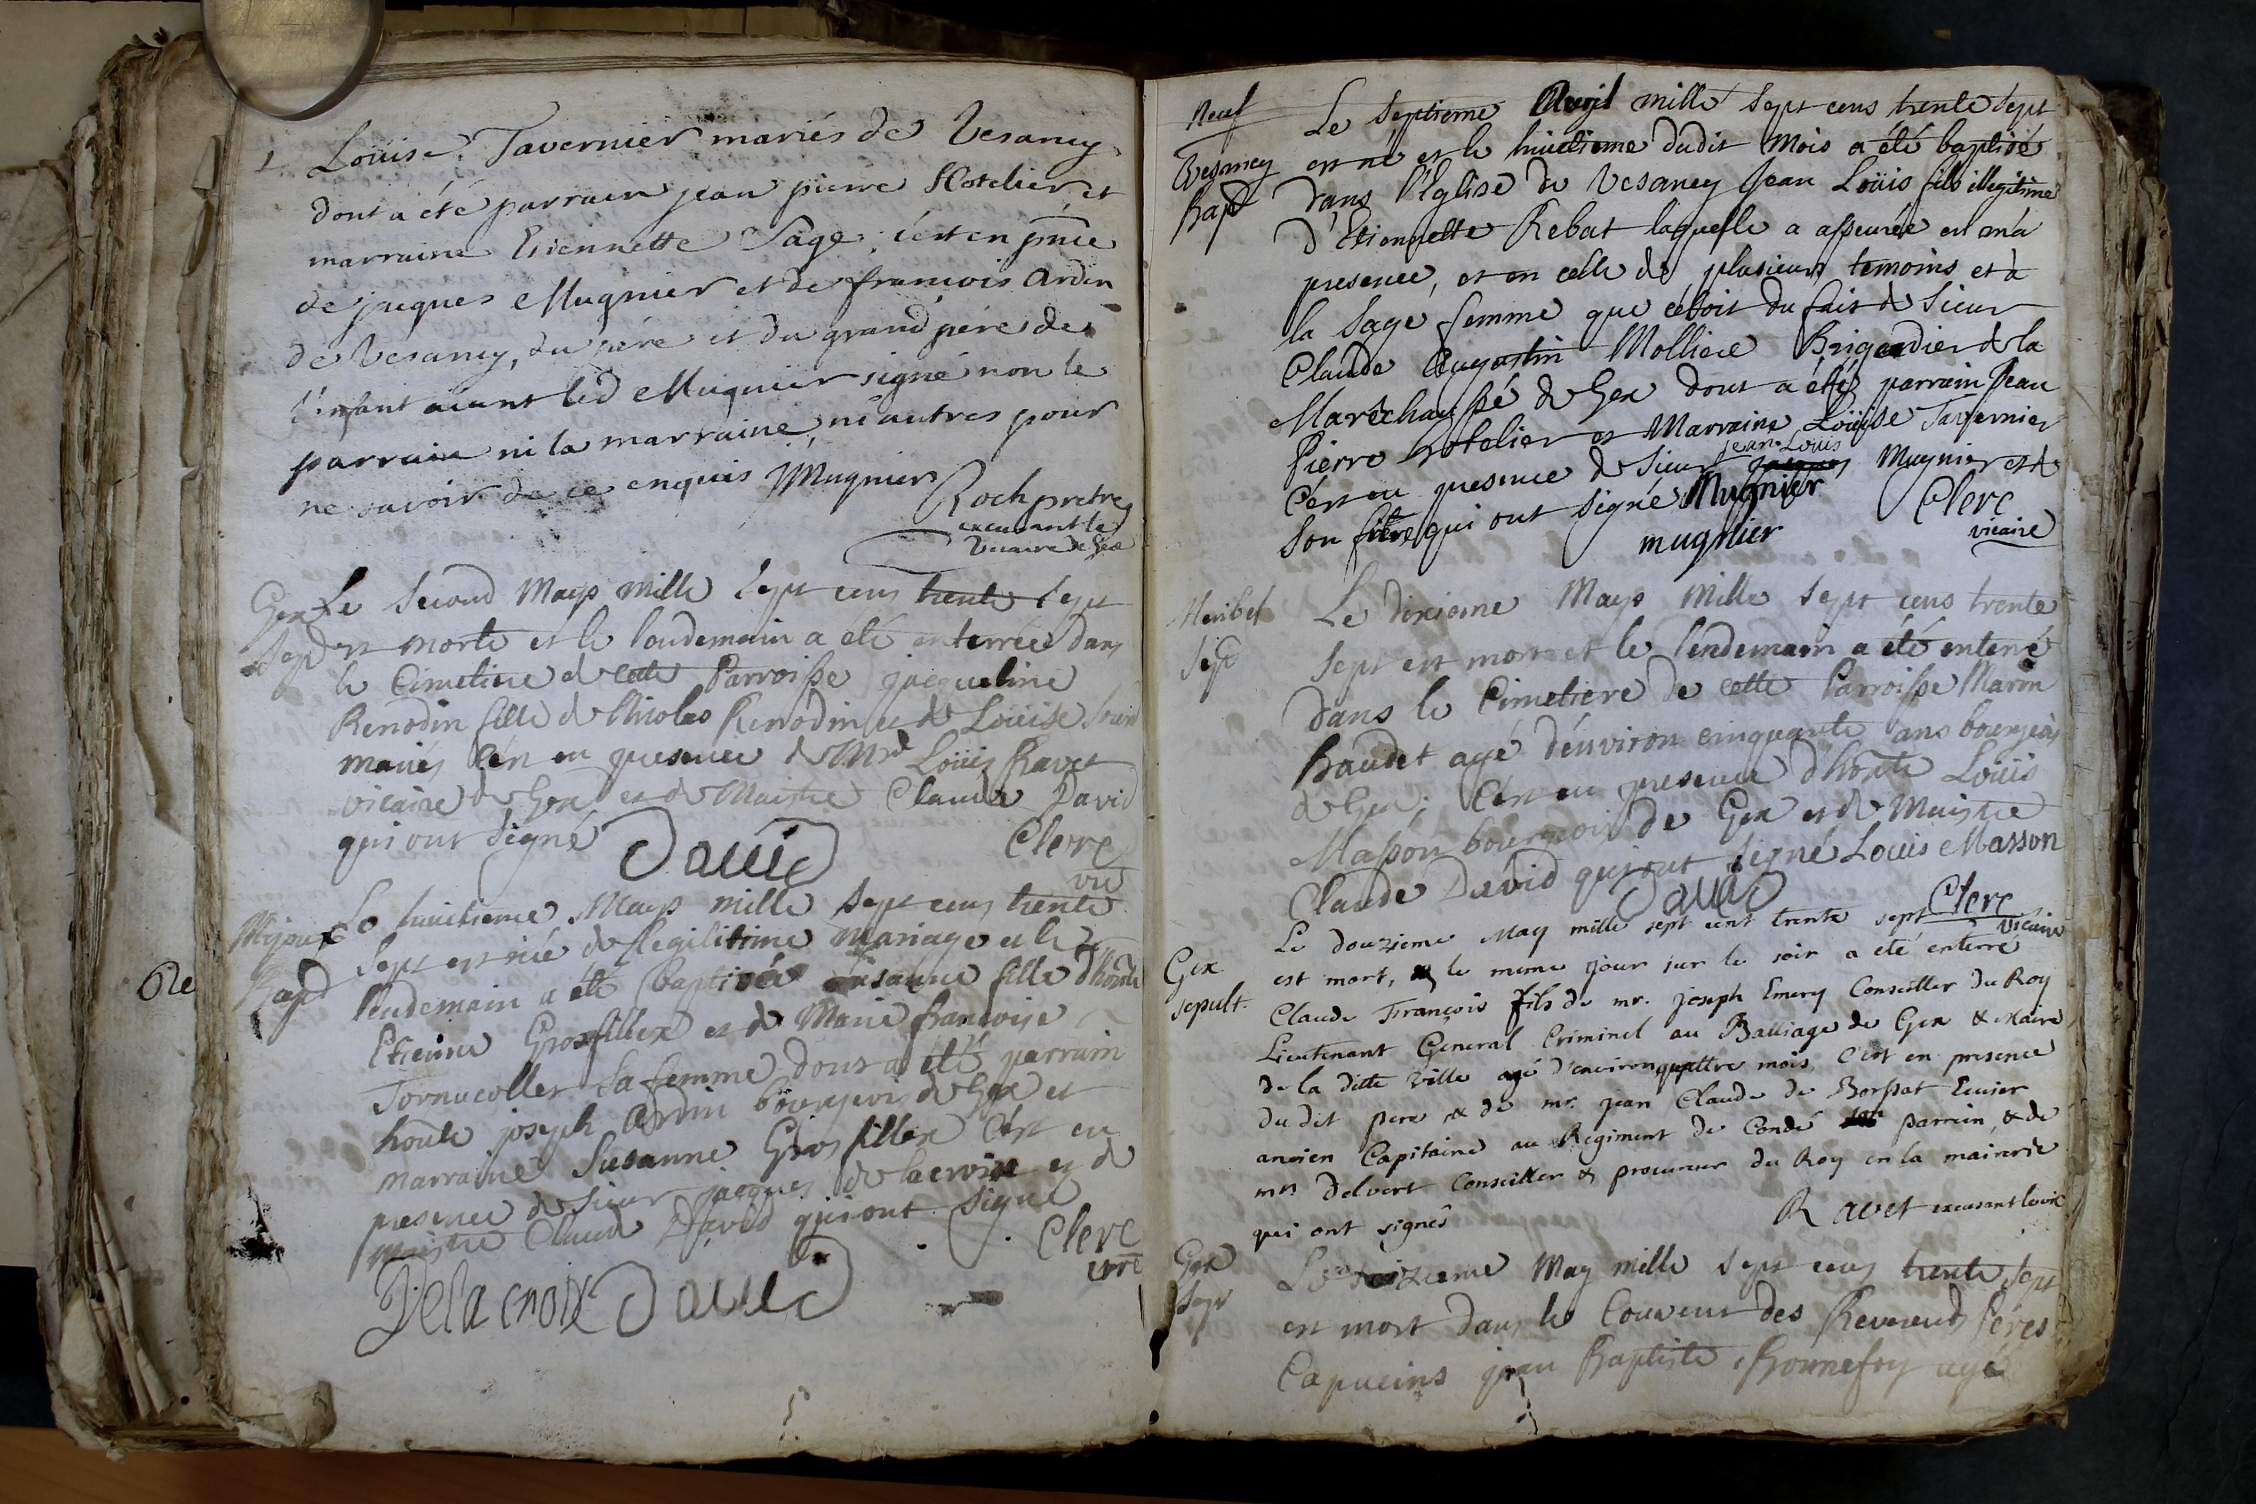 Louise Tavernier mariés de Vesancy
dont a été parrain jean pierre Hotelier, et
marraine Etiennette Sage; c'est en pnce
de jacques Mugnier et de francois Ardin
de Vesancy, du pére et du grand pére de
l'enfant aiant led Mugnier signé non le
parrain ni la marraine, ni autres pour
ne savoir de ce enquis JMugnier
Roch pretre
excusant le
Vicaire de Gex
Gex Le second Mays mille sept cens trente sept
Sepd est morte et le landemain a eté enterrée dans
le Cimetiere de cette Parroisse jacqueline
Renodin fille de Nicolas Renodin et de Loüise
mariés c'est en presence de Mre Loüis Ravet
vicaire de Gex et de Maistre Claude David
qui ont signé
David
Clerc
vic
Mijoux Le huictieme Mays mille sept cens trente
Bapd sept est née de legilitime mariage et le
lendemain a été baptisée Susanne fille d'honble
Etienne Grosfillex et de Marie francoise
Tornacoller sa femme dont a été parrain
honble joseph Ardin bourgeois de Gex et
marraine Susanne Grosfillex c'est en
presence de Sieur jacques de lacroix et de
Maistre Claude David qui ont signé
Clerc
vice
Delacroix David
Re
Neuf
Le septieme Avril mille sept cens trente sept
Vesancy est né et le huictieme dudit Mois a été baptisé
Bapd dans l'Eglise de Vesancy Jean Loüis fils illegitime
d'Etiennette Rebat laquelle a asseurée en ma
presence, et en celle de plusieurs temoins et à
la sage femme que c'étoit du fait de Sieur
Claude Augustin Molliere Brigadier de la
Maréchaussé de Gex dont a été parrain Jean
Pierre hotelier et Marraine Loüise Tavernier
jean Louis
C'est en presence de Sieur jacques Mugnier et de
son frere qui ont signé Mugnier
Clerc
vicaire
mugnier
Le dixieme Mays Mille sept cens trente
Sepd sept est mort et le lendemain a été enterré
dans le Cimetiere de cette Parroisse Marin
Baudet agé d'environ cinquante ans bourgeois
de Gex; C'est en presence d'honble Loüis
Masson bourgeois de Gex et de Maistre
Claude David qui ont signé Louis Masson
David
Clerc
vicaire
Le douzieme May mille sept cent trente sept
Gex est mort, le meme jour sur le soir a eté enterré
sepult. Claude François fils de mr. joseph Emery Conseiller du Roy
Lieutenant General Criminel au Balliage de Gex & Maire
de la ditte Ville agé d'environ quattre mois, c'est en presence
du dit pere & de mr. jean Claude de Borssat Ecuier
ancien Capitaine au Regiment de Condé parrein, & de
mr. Delvert Conseiller & procureur du Roy en la mairerie
qui ont signés
Ravet excusant le vic
Gex Le treizieme May mille sept cens trente sept
Sepd est mort dans le Couvent des Reverends Péres
Capucins jean Baptiste Bonnefoy agé